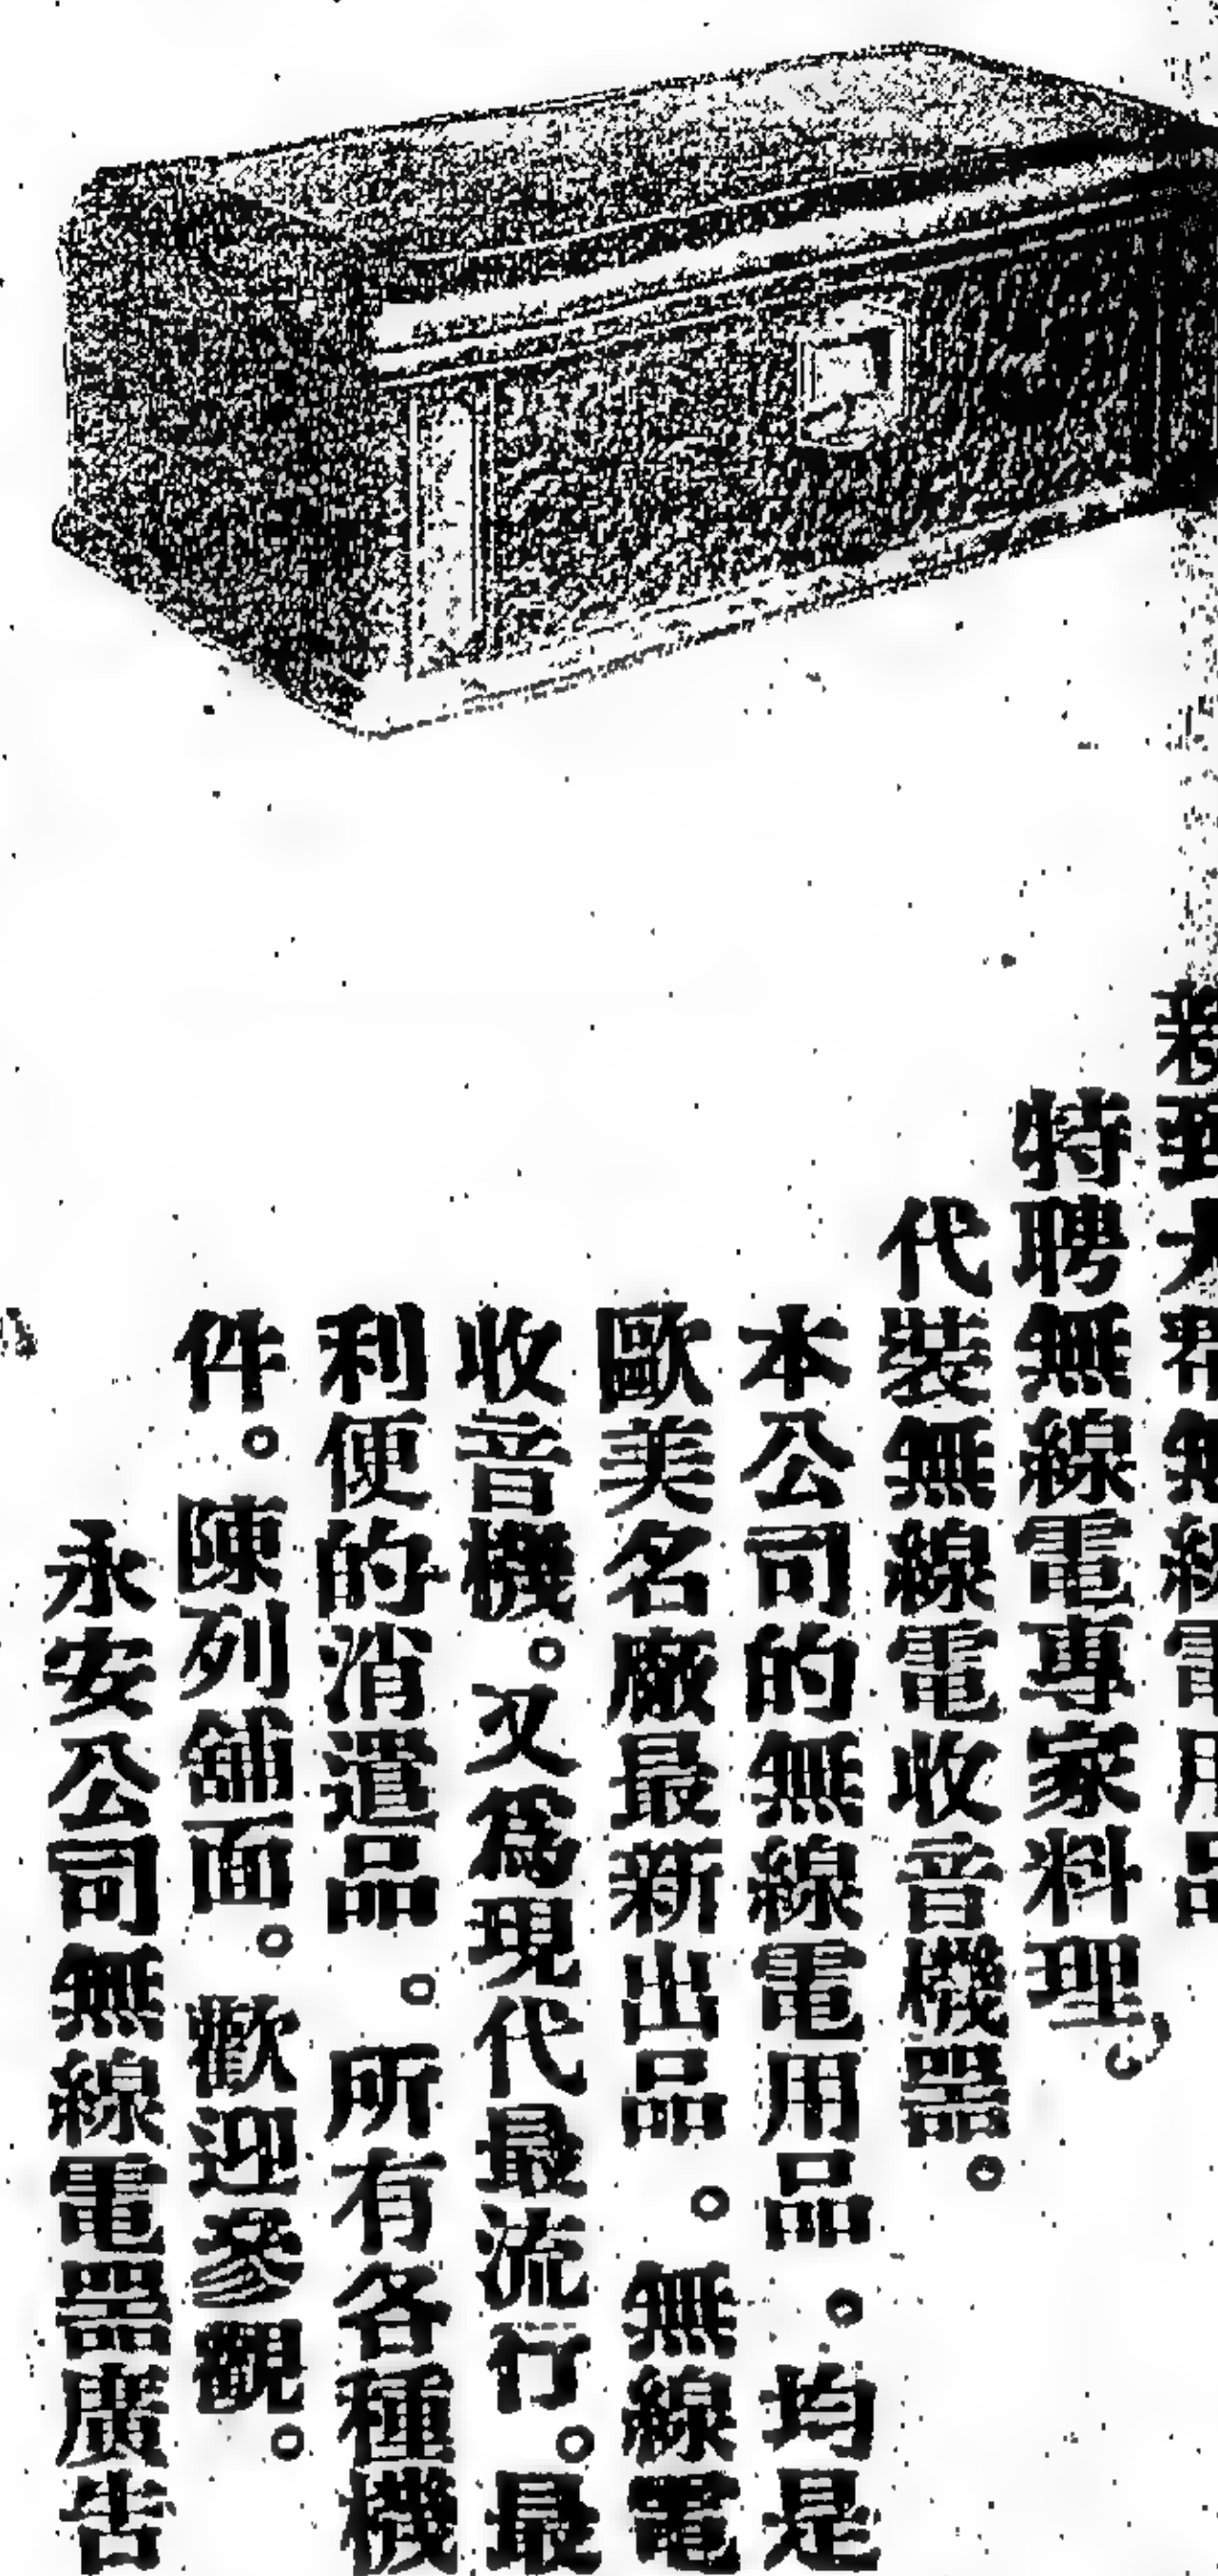 新到大帮無線電用品
特聘無線電專家料理。
代裝無線電收音機器。
本公司的無線電用品。均是
歐美名廠最新出品。無線電
收音機。又爲現代最流行。最
利便的消遣品。所有各種機
件。陳列舖面。歡迎參觀。
永安公司無線電器廣告